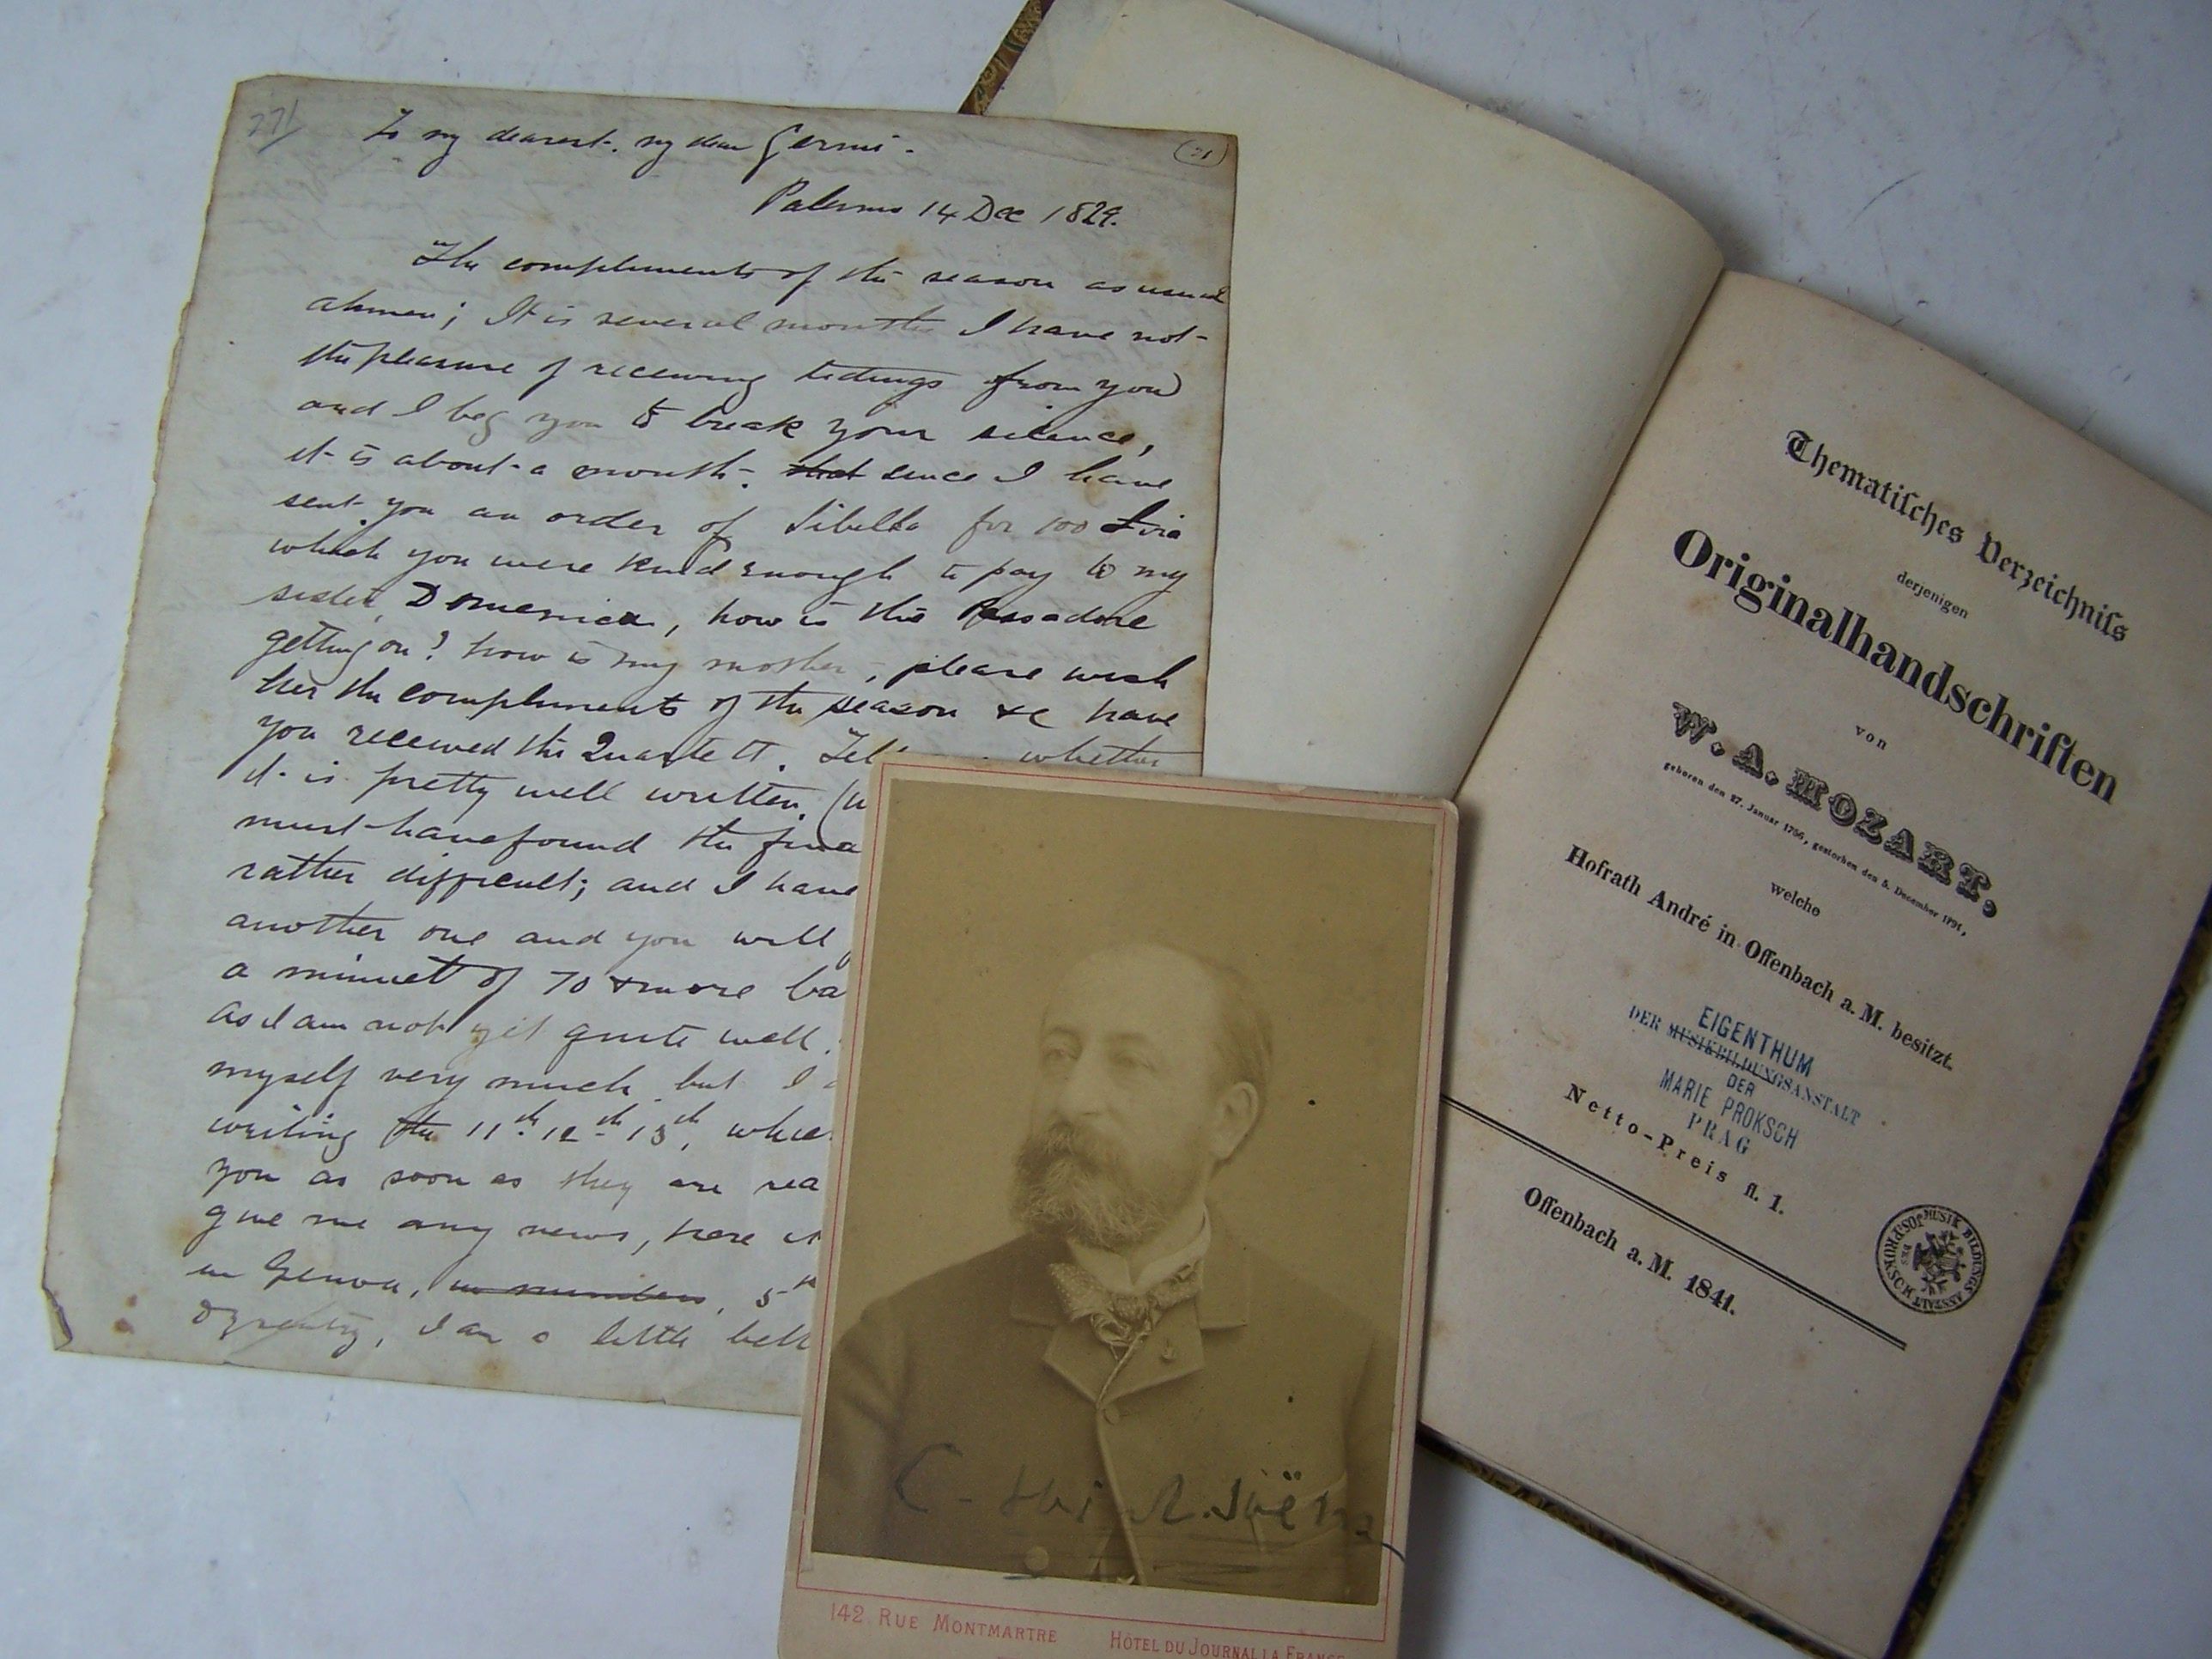 27/
To my dearest. my dear Germi -
(21)
Palermo 14 Dec 1829.
The compliments of the season as usual
ahmen; It is several months I have not
the pleasure of receiving tidings from you
and I beg you to break your silence,
it is about a month. that since I have
sent you an order of Sibilla for 100 Lire
which you were kind enough to pay to my
sister Domenica, how is the
getting on? how is my mother, please wish
her the compliments of the season &c have
you received the Quartett. whether
it is pretty well written.
must have found the
rather difficult; and I have
another one and you will
a minuet of 70 & more ba
as I am not yet quite well.
myself very much but I
writing the 11th. 12th 13th,
you as soon as they are rea
give me any news, here it
in Genova, in numbers, 5
I am a little bett
Thematisches Verzeichniss
derjenigen
Originalhandschriften
von
W. A. MOZART,
geboren den 27. Januar 1756, gestorben den 5. December 1791,
welche
Hofrath André in Offenbach a. M. besitzt.
EIGENTHUM
DER MUSIKBILDUNGSANSTALT
DER
MARIE PROKSCH
PRAG
Netto-Preis fl. 1.
Offenbach a. M. 1841.
MUSIK BILDUNGS ANSTALT DES JOS. PROKSCH
142 RUE MONTMARTRE HÔTEL DU JOURNAL LA FRANCE